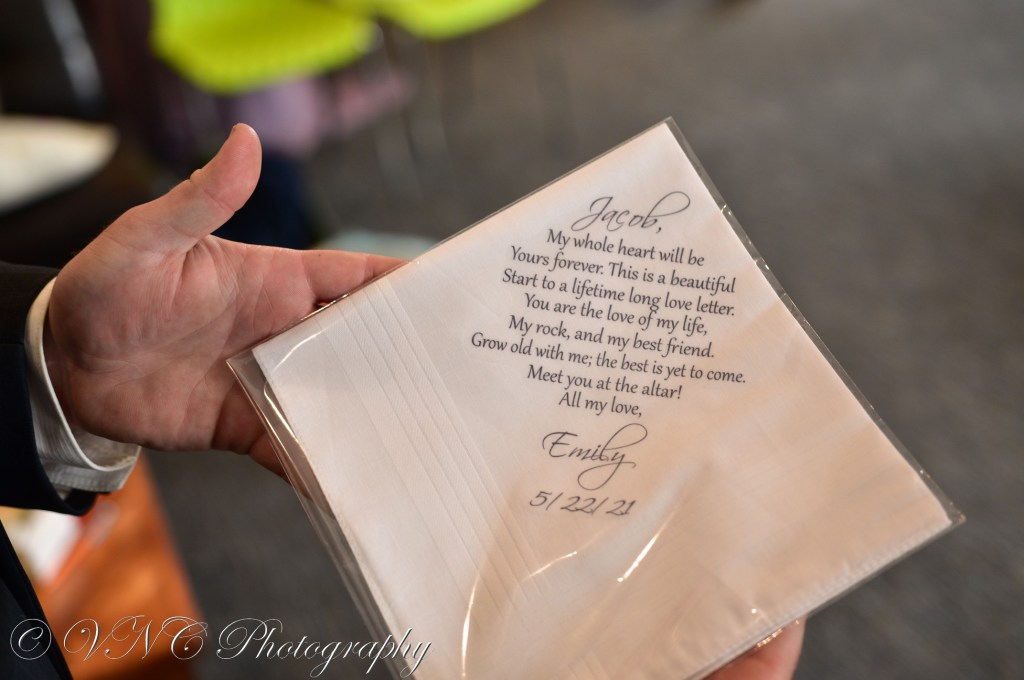 Jacob,
My whole heart will be
Yours forever. This is a beautiful
Start to a lifetime long love letter.
You are the love of my life,
My rock, and my best friend.
Grow old with me; the best is yet to come.
Meet you at the altar!
All my love,
Emily
5/22/21
© VNC Photography